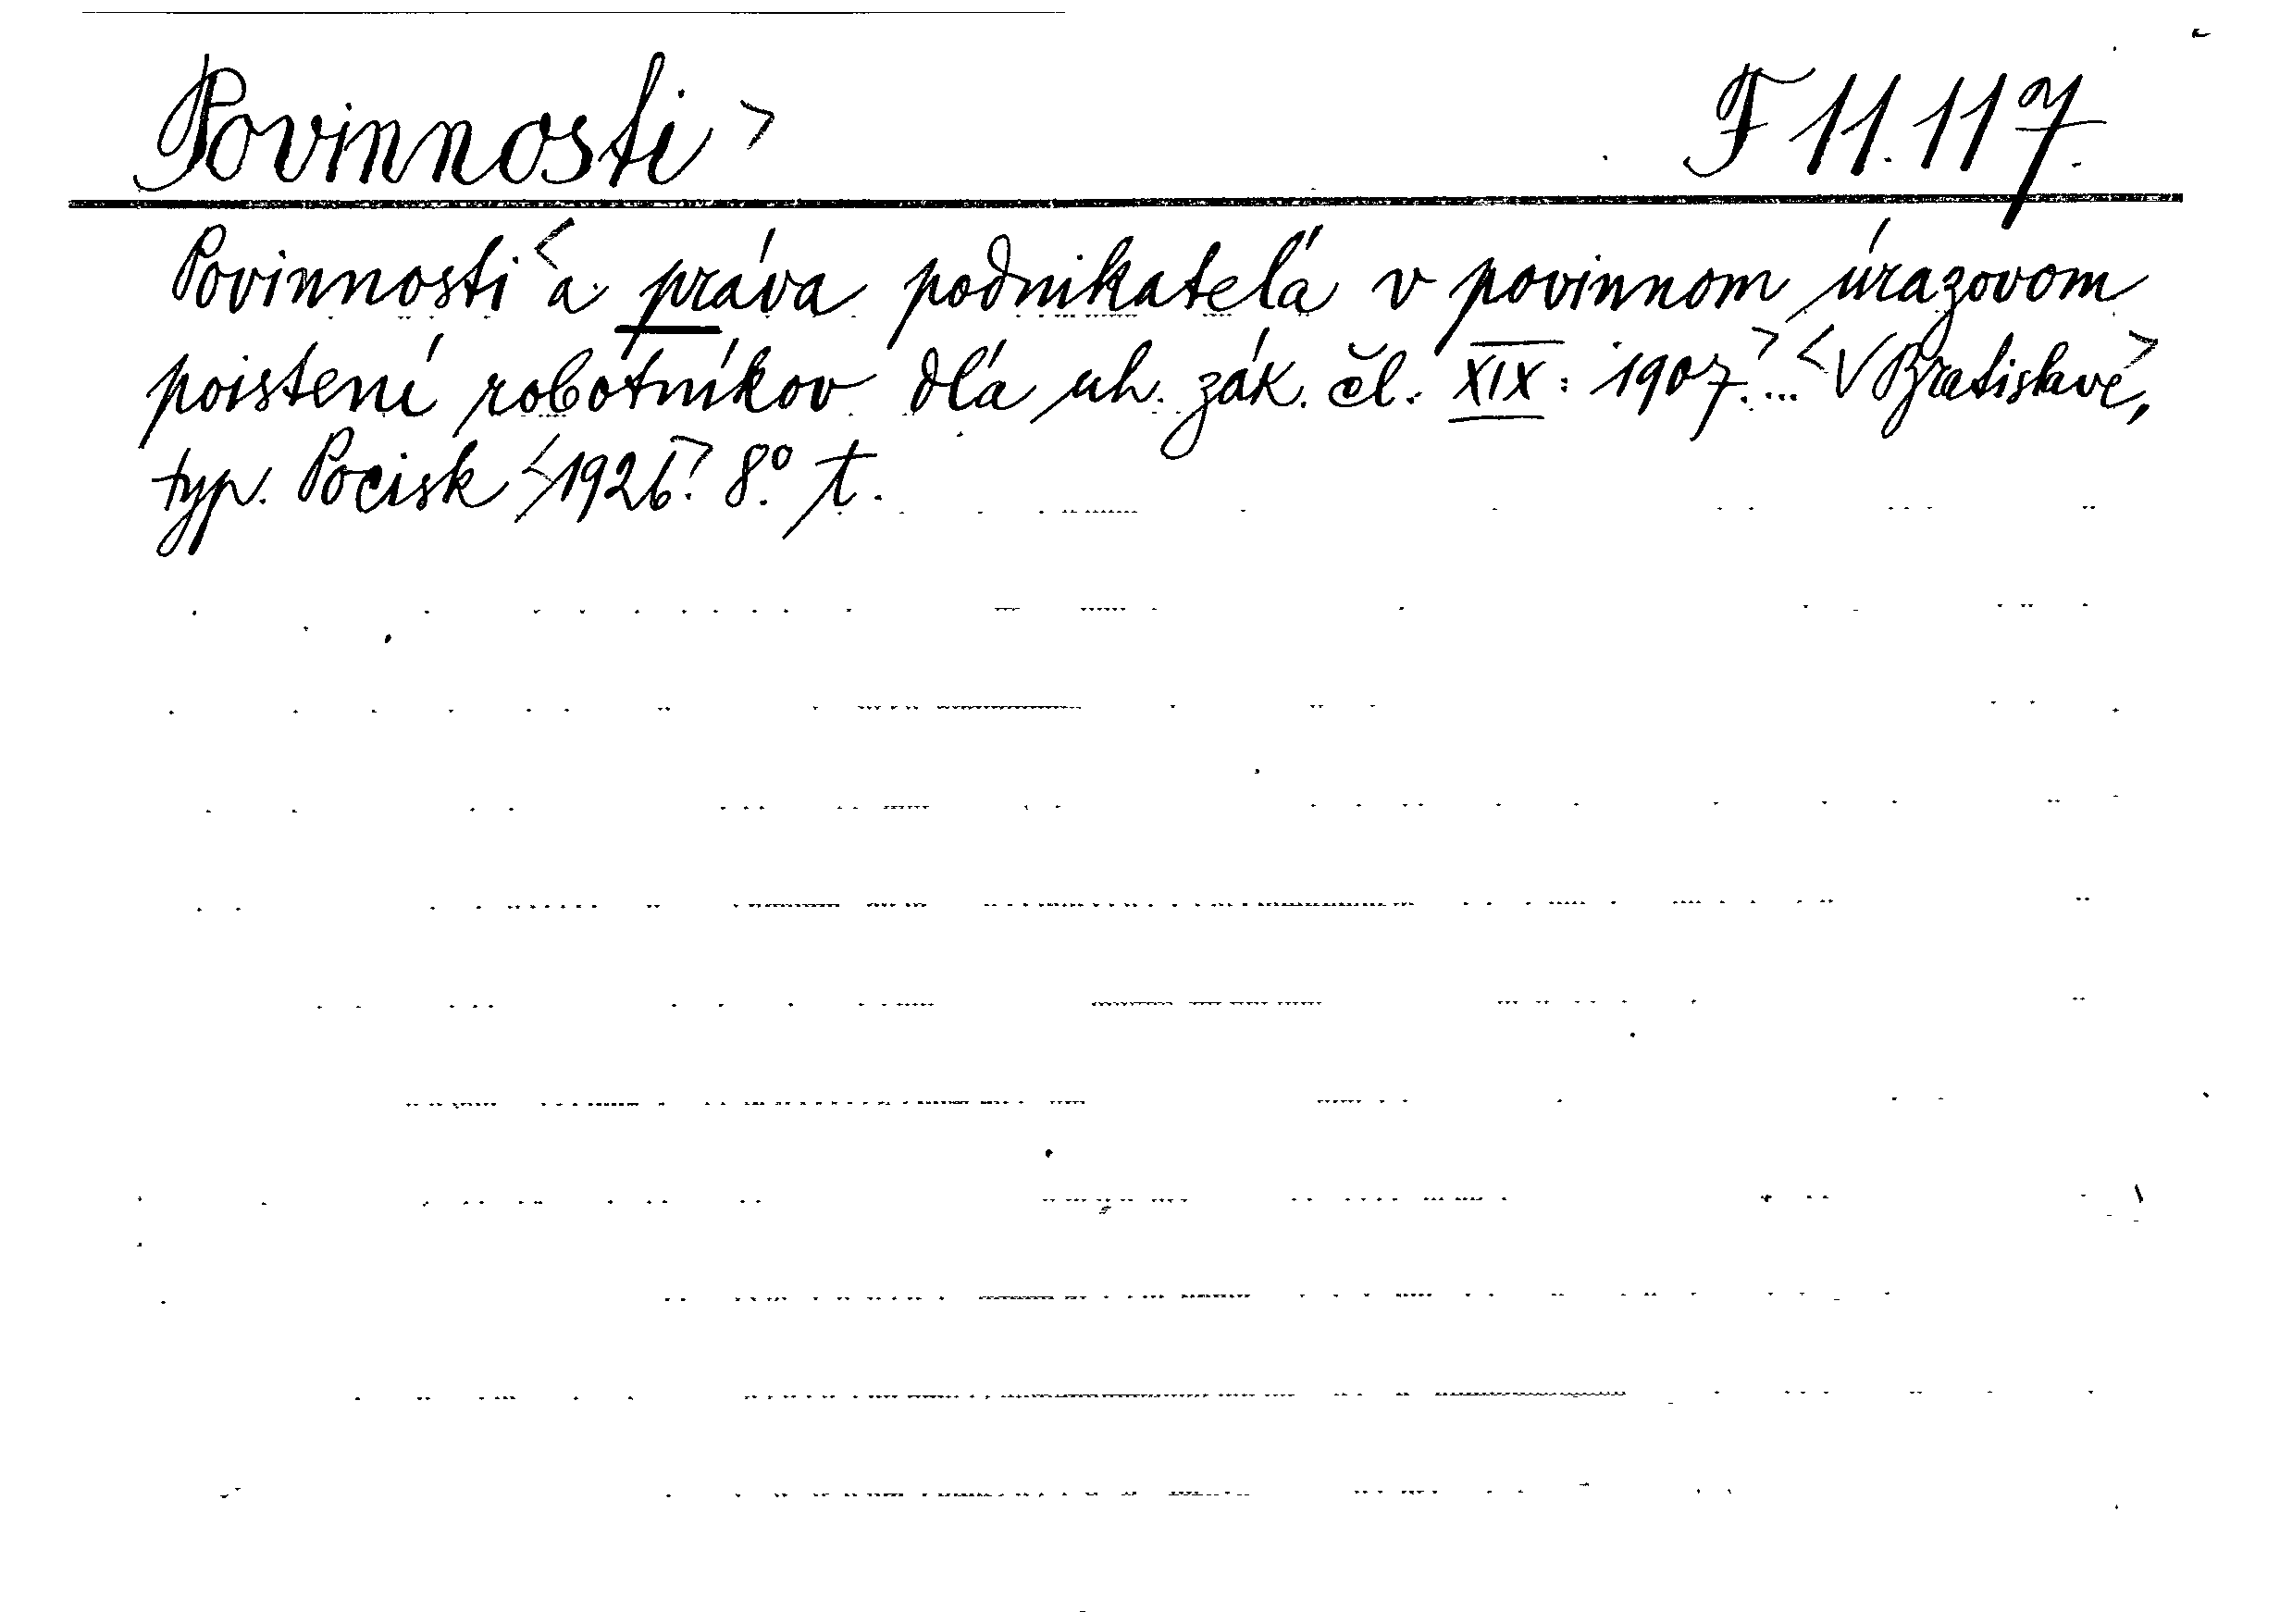 Povinnosti > F 11.117.
Povinnosti < a práva podnikateľa v povinnom úrazovom
poistení robotníkov dľa uh. zák. čl. XIX: 1907.> ... <V Bratislave>,
typ. Pocisk <1926>. 8° t.